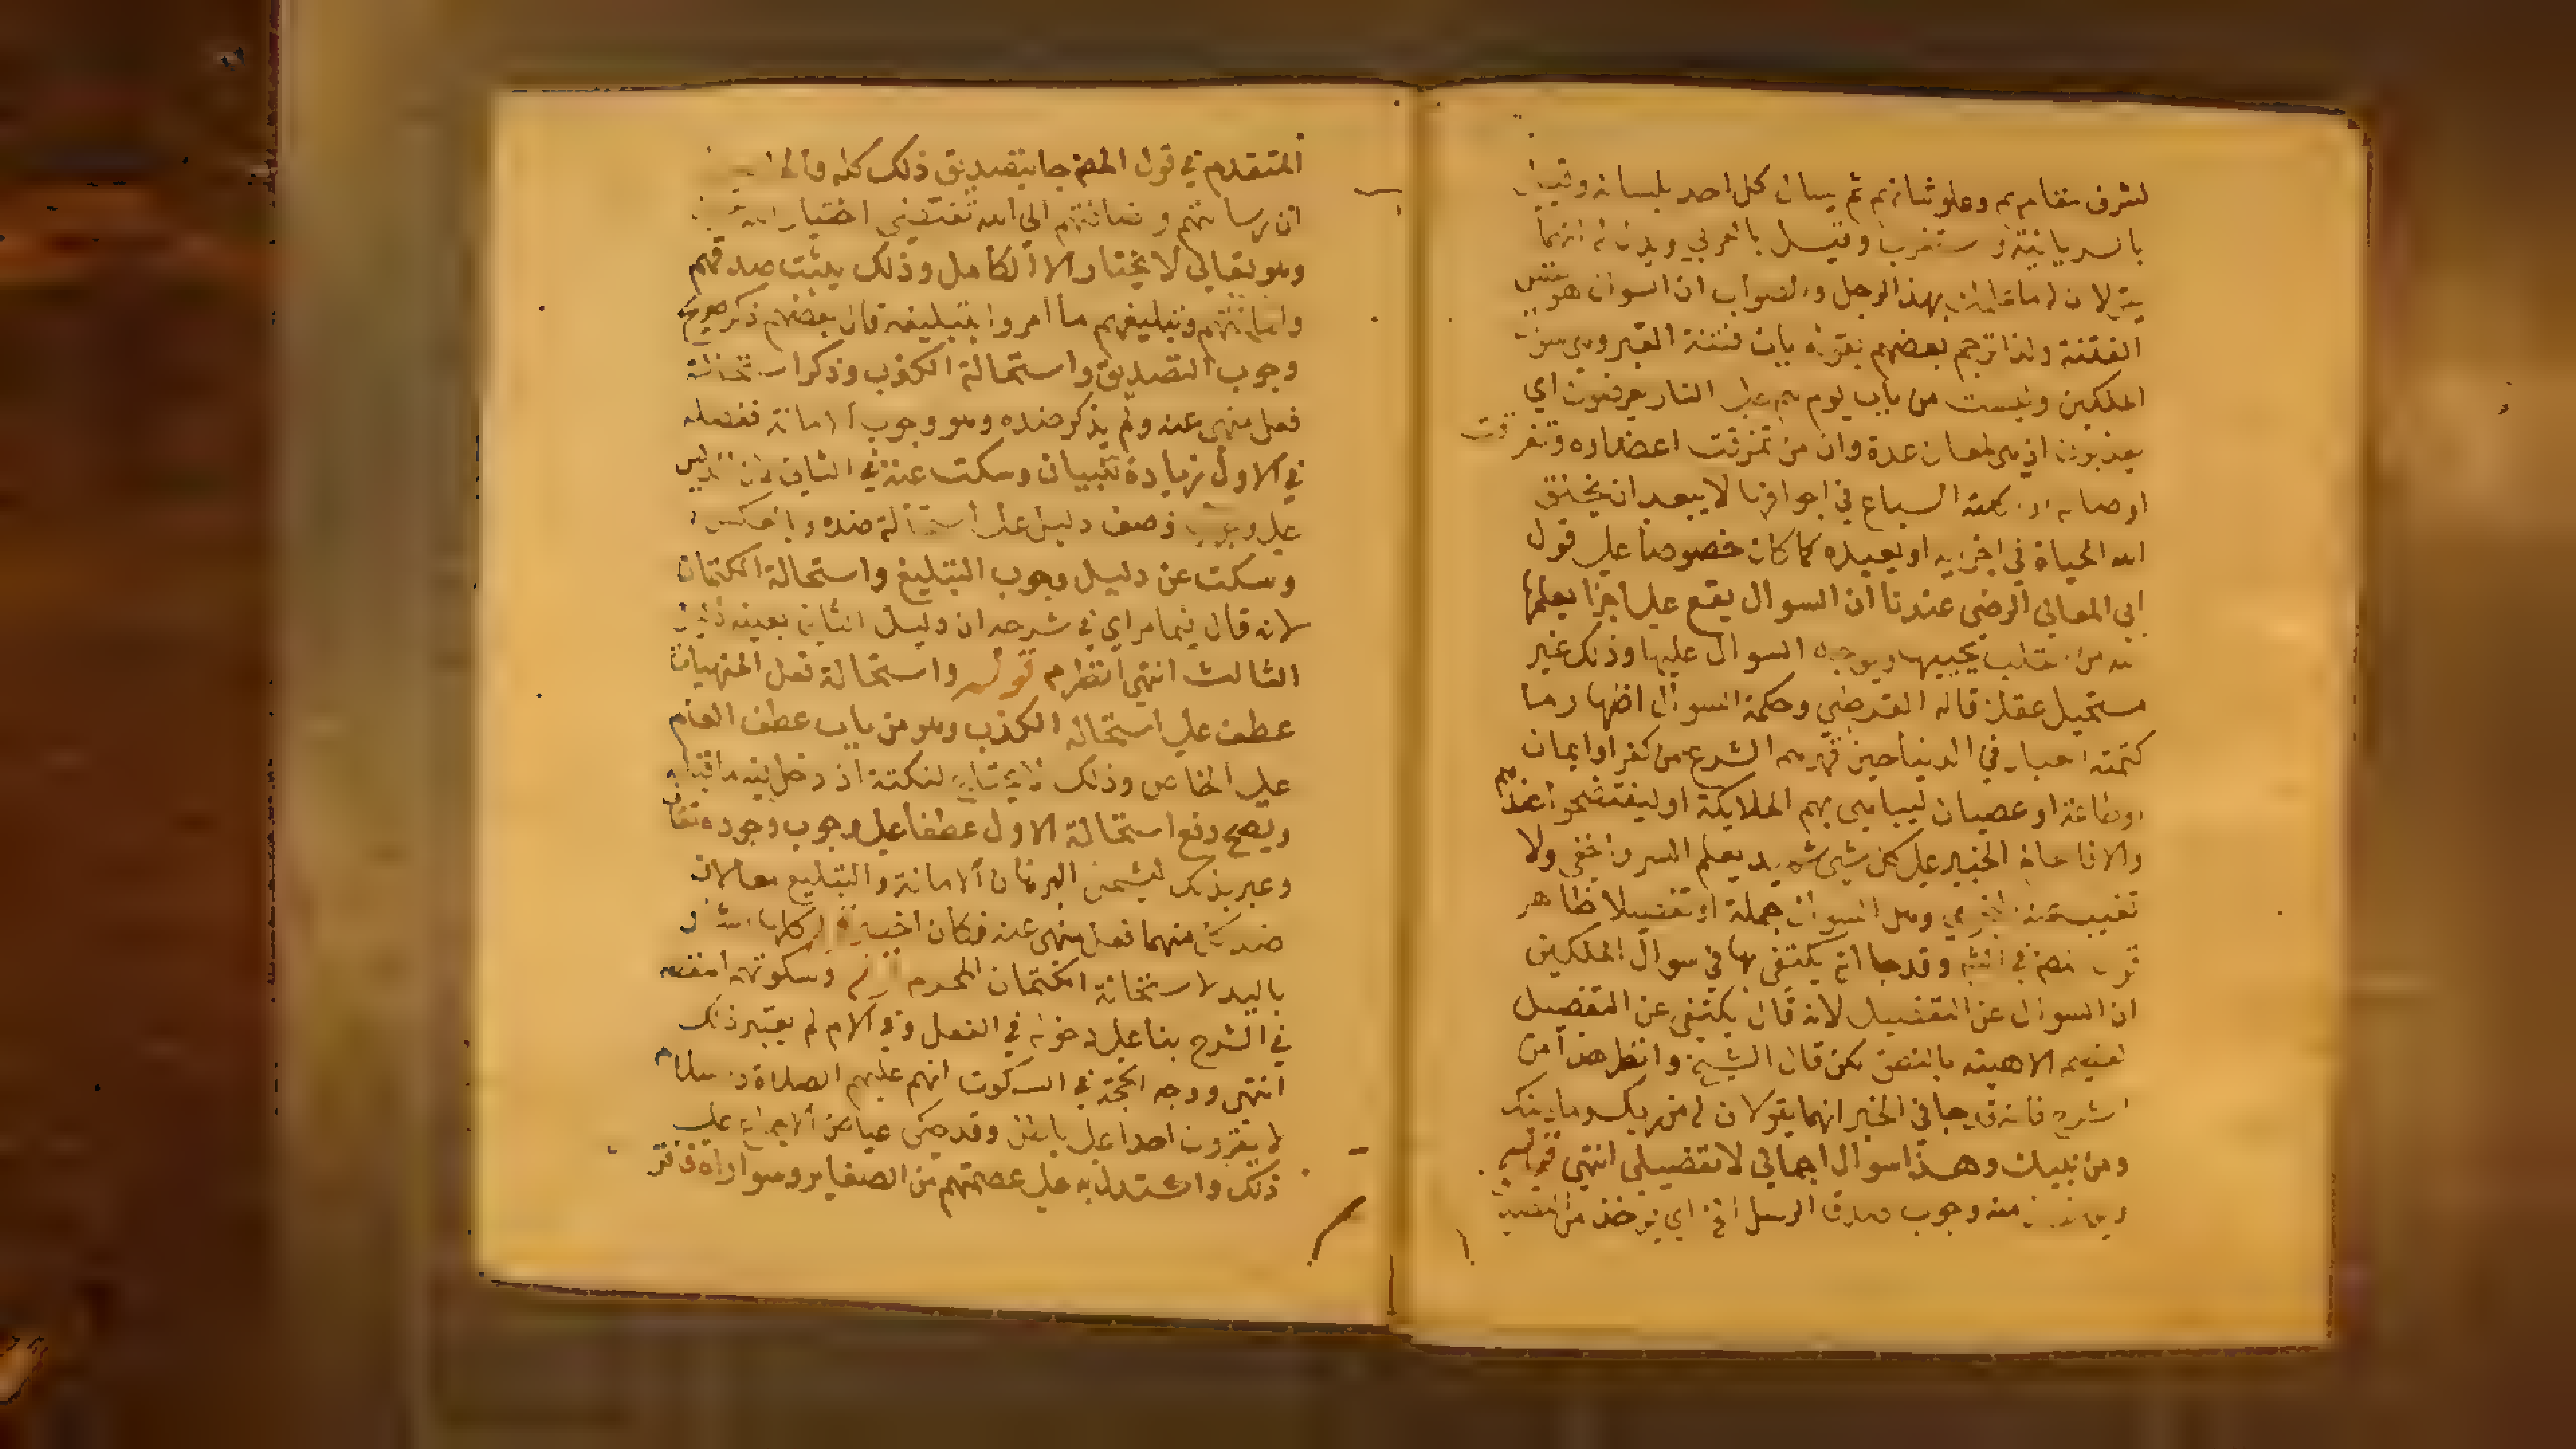 لشرف مقامهم وعلو شانهم ثم يسال كل احد بلسانه وقيل
بالسريانية واستغرب وقيل بالعربي ويدل له انهما
يقولان له ما علمك بهذا الرجل والصواب ان السوال هو نفس
الفتنة ولذا ترجم بعضهم بقوله باب فتنة القبر وهي سوال
الملكين وليست من باب يوم هم على النار يفتنون اي
يعذبون اذ هي لمعان عدة وان من تمزقت اعضاوه وتفرقت
اوصاله او اكلته السباع في اجوافها لا يبعد ان يخلق
الله الحياة في اجزايه او يعيده كما كان خصوصا على قول
ابي المعالي المرضي عندنا ان السوال يقع على اجزا يعلمها
الله من القلب يحييها ويوجه السوال عليها وذلك غير
مستحيل عقلا قاله القرطبي وحكمة السوال اظهار ما
كتمته العباد في الدنيا حين قهرهم الشرع من كفر او ايمان
او طاعة او عصيان ليباهي بهم الملايكة او ليفتضحوا عندهم
والا فالله الخبير على كل شي شهيد يعلم السر واخفى ولا
تغيب عنه وهل السوال جملة او تفصيلا ظاهر
نصه في وقد جا انه يكتفى بها في سوال الملكين
ان السوال عن التفصيل لانه قال يكتفى عن التفصيل
بالنص لكن قال الشيخ وانظر هذا من
الشرح فانه قد جا في الخبر انهما يقولان له من ربك وما دينك
ومن نبيك وهذا سوال اجمالي لا تفصيلي انتهى قوله
ويوخذ منه وجوب صدق الرسل الخ اي يوخذ من التصديق
المتقدم في قول المص جا بتصديق ذلك كله
ان رسالتهم واضافتهم الى الله تقتضي اختيار الله
وهو تعالى لا يختار الا الكامل وذلك يثبت صدقهم
وامانتهم وتبليغهم ما امروا بتبليغه قال بعضهم ذكر صريح
وجوب التصديق واستحالة الكذب وذكر استحالة
فعل منهي عنه ولم يذكر ضده وهو وجوب الامانة ففصله
في الاول زيادة تبيان وسكت عنه في الثاني لان الدليل
على وجوب وصف دليل على استحالة ضده وبالعكس
وسكت عن دليل وجوب التبليغ واستحالة الكتمان
لانه قال فيما مر اي في شرحه ان دليل الثاني بعينه دليل
الثالث انتهى انظر م قوله واستحالة فعل المنهيات
عطف على استحالة الكذب وهو من باب عطف العام
على الخاص وذلك لا يحتاج لنكتة اذ دخل فيه ما قبله
ويصح رفع استحالة الاول عطفا على وجوب وجوده تعالى
وعبر بذلك ليشمل البرهان الامانة والتبليغ معا لان
ضد كل منهما فعل منهي عنه فكان
باليد لاستحالة الكتمان المحرم وسكوته
في الشرح بنا على دخوله في الفعل وفي الام لم يعتبر ذلك
انتهى ووجه الحجة في السكوت انهم عليهم الصلاة والسلام
لا يقرون احدا على باطل وقد حكى عياض الاجماع على
ذلك واستدل به على عصمتهم من الصغاير وسوا راه فاقر